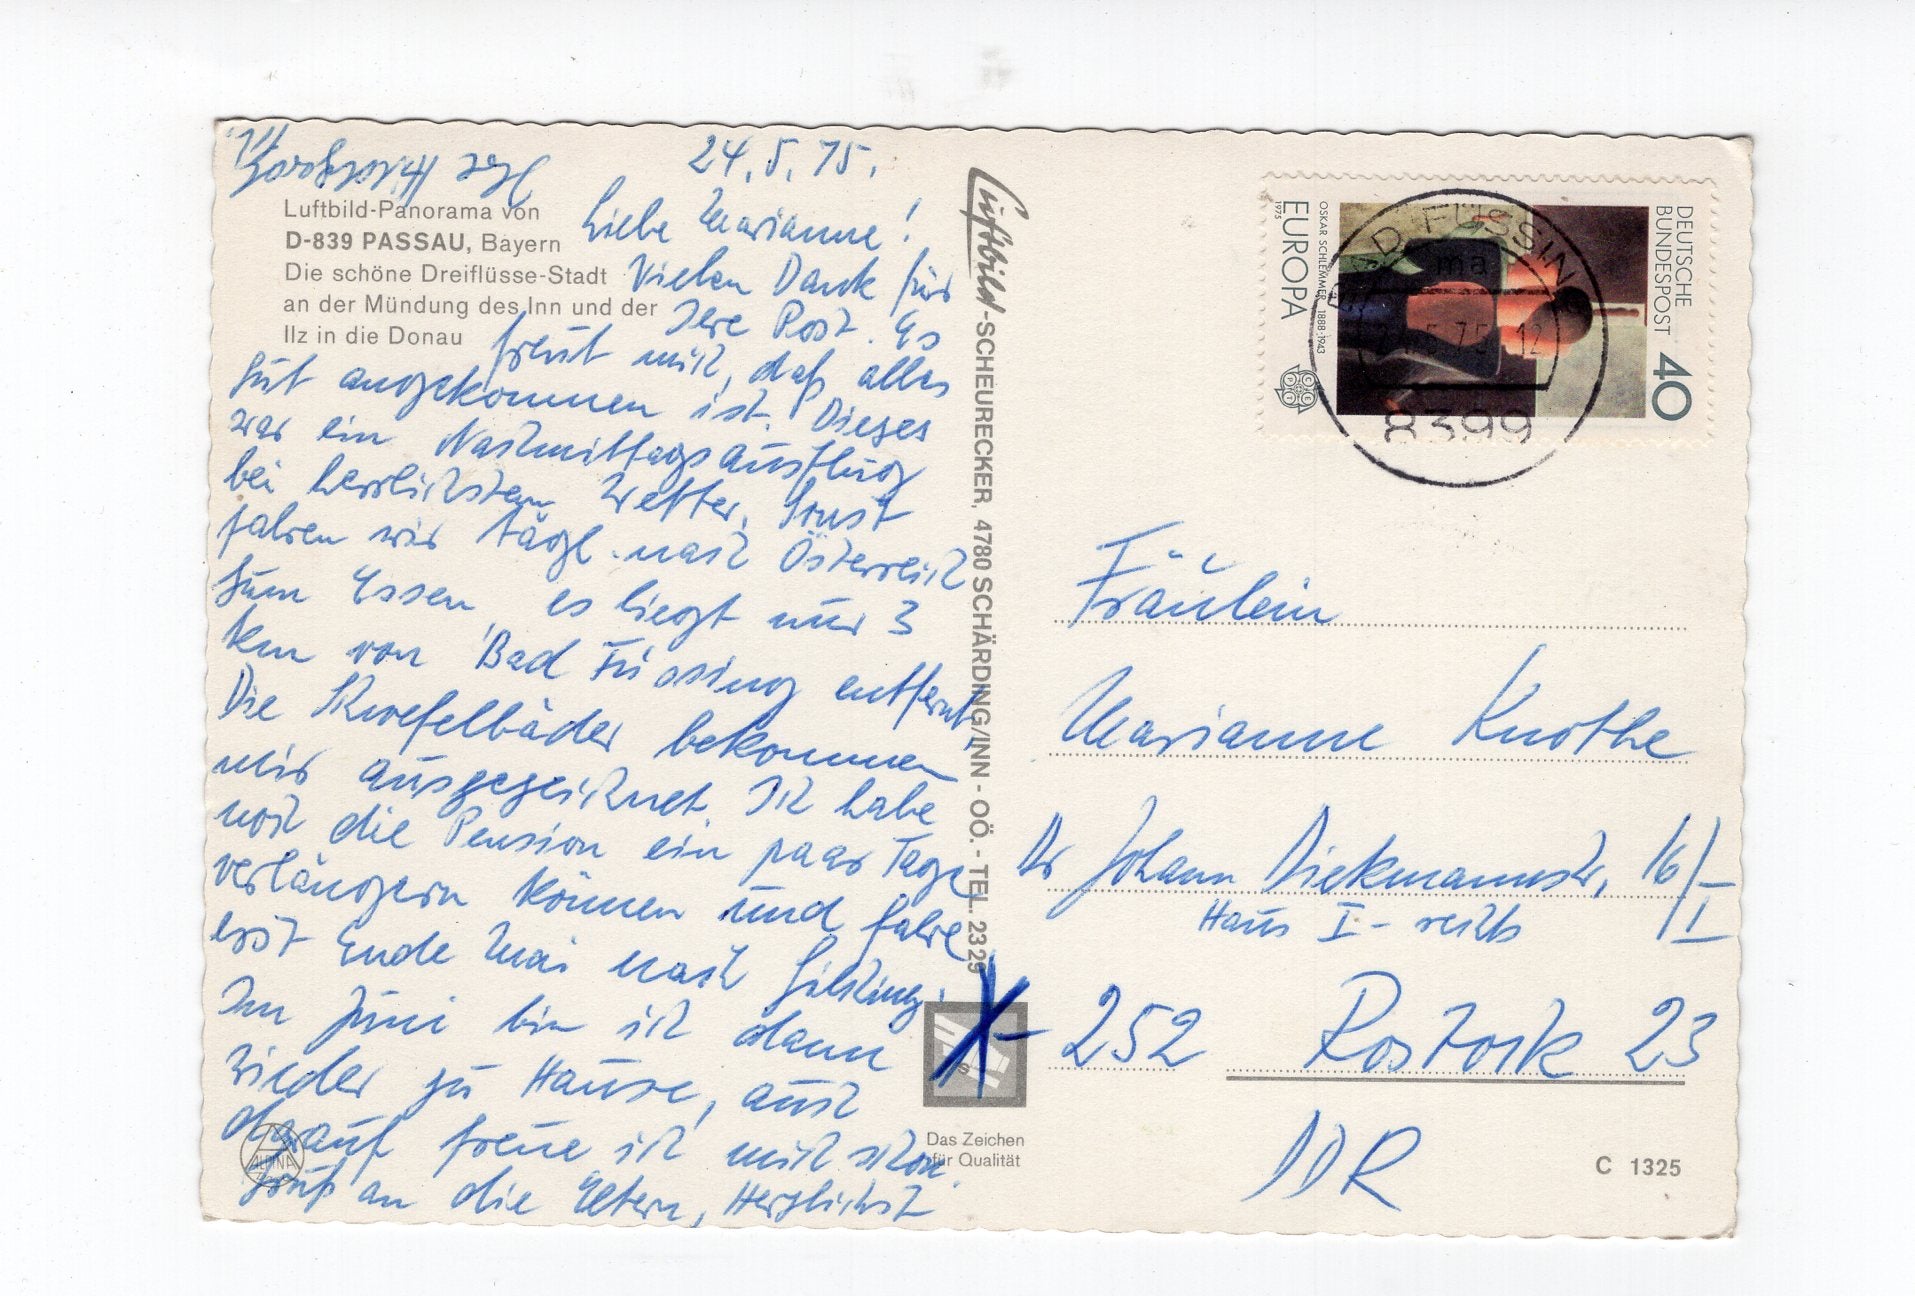 24.5.75.
Luftbild-Panorama von
D-839 PASSAU, Bayern
Die schöne Dreiflüsse-Stadt
an der Mündung des Inn und der
Ilz in die Donau
Liebe Marianne!
Vielen Dank für
Ihre Post. Es
freut mich, daß alles
gut angekommen ist. Dieses
war ein Nachmittagsausflug
bei herrlichstem Wetter. Sonst
fahren wir tägl. nach Österreich
zum Essen, es liegt nur 3
km von Bad Füssing entfernt,
Die Schwefelbäder bekommen
mir ausgezeichnet. Ich habe
noch die Pension ein paar Tage
verlängern können und fahre
erst Ende Mai nach
Im Juni bin ich dann
wieder zu Hause, auch
darauf freue ich mich schon.
Gruß an die Eltern, Herzlichst
Ihre
Luftbild-SCHEURECKER, 4780 SCHÄRDING/INN - OÖ. - TEL. 2329
ALPINA
Das Zeichen
für Qualität
DEUTSCHE
BUNDESPOST 40
OSKAR SCHLEMMER 1888-1943
EUROPA
1975
CEPT
BAD FÜSSING
ma
5.75.12
8399
Fräulein
Marianne Knothe
Dr Johann Diekmannstr. 16/I
Haus I - rechts
252 Rostock 23
DDR
C 1325